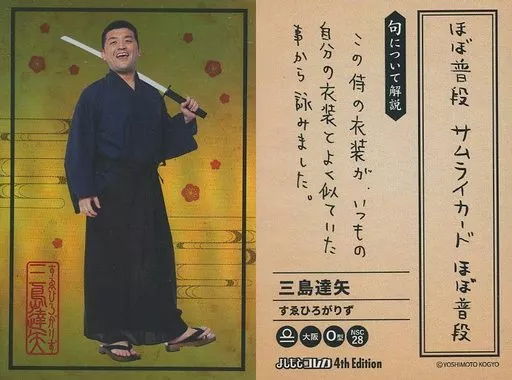 すゑひろがりず
三島達矢
ほぼ普段 サムライカード ほぼ普段
句について解説
この侍の衣装が、いつもの
自分の衣装とよく似ていた
事から詠みました。
三島達矢
すゑひろがりず
大阪
O型
NSC
28
よしもとコレカ 4th Edition
©YOSHIMOTO KOGYO